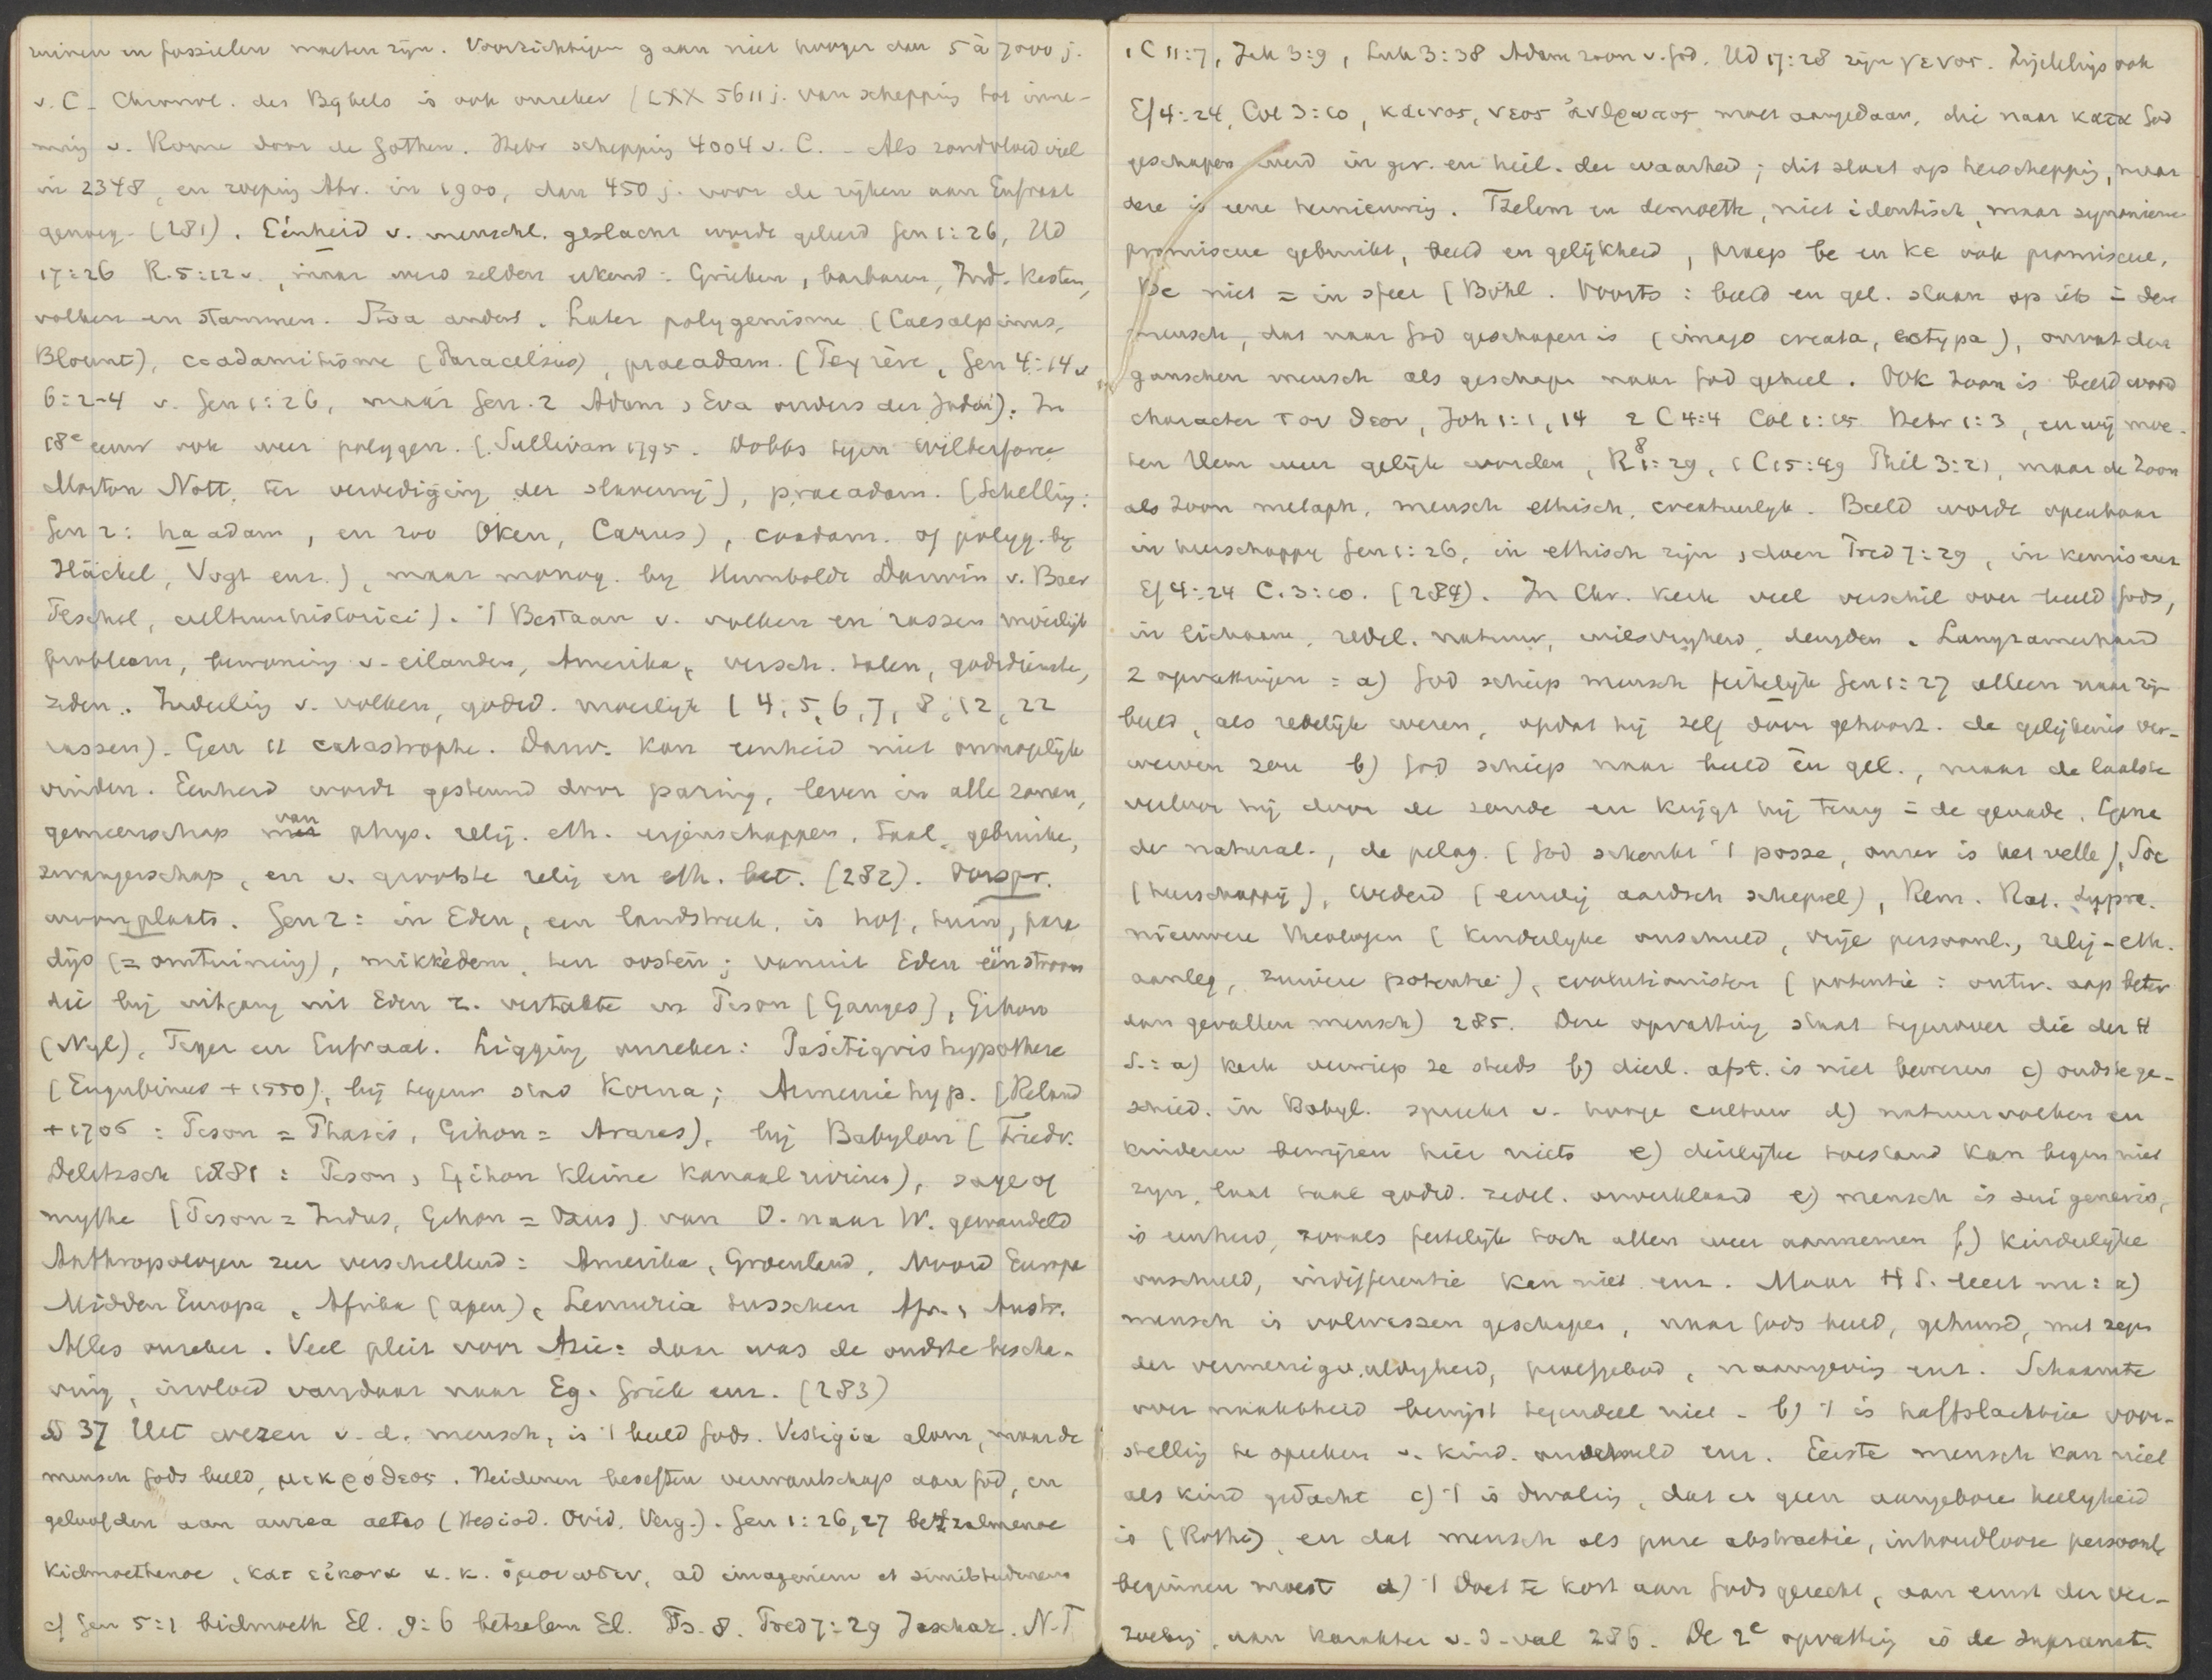 ruinen en fossielen moeten zijn. Voorzichtigen gaan niet hooger dan 5 à 7000 j.
v. C. Chronol. des Bybels is ook onzeker (LXX 5611 j. van schepping tot inne-
ming v. Rome door de Gothen. Hebr schepping 4004 v. C. - Als zondvloed viel
in 2348, en roeping Abr. in 1900, dan 450 j. voor de rijken aan Eufraat
genoeg (281). Eénheid v. menschl. geslacht wordt geleerd Gen 1:26, Hd
17:26 R. 5:12 v., maar werd zelden erkend: Grieken, barbaren, Ind. kasten,
volken en stammen. Stoa anders. Later polygenisme (Caesalpinus,
Blount), coadamitisme (Paracelsus), praeadam. (Peyrère, Gen 4:14 v
6:2-4 v. Gen 1:26, maar Gen. 2 Adam, Eva ouders der Joden). In
18e eeuw ook weer polygen. (Sullivan 1795. Dobbs tegen Wilberforce
Morton Nott, ter verdediging der slavernij), praeadam. (Schelling:
Gen 2: ha adam, en zoo Oken, Carus), coadam. of polyg. by
Häckel, Vogt enz.), maar monog. by Humboldt Darwin v. Baer
Peschel, cultuurhistorici). 't Bestaan v. volken en rassen moeilijk
probleem, bewoning v. eilanden, Amerika, versch. talen, godsdienste,
zeden. Indeeling v. volken, godsd. moeilijk (4, 5, 6, 7, 8, 12, 22
rassen). Gen 11 catastrophe. Darw. kan eenheid niet onmogelijk
vinden. Eenheid wordt gesteund door paring, leven in alle zonen,
gemeenschap van phys. relig. eth. eigenschappen, taal, gebruike,
zwangerschap, en v. grootste relig en eth. bet. (282). Oorspr.
woonplaats. Gen 2: in Eden, een landstreek, is hof, tuin, para
dijs (= omtuining), mikkèdem, ten oosten; vanuit Eden één stroom
die bij uitgang uit Eden z. vertakte in Pison (Ganges), Gihon
(Nyl), Tiger en Eufraat. Ligging onzeker: Pasitigris hypothese
(Eugubinus + 1550), bij tegenw stad Korna; Armenie hyp. (Reland
+ 1706: Pison = Phasis, Gihon = Araxes), bij Babylon (Friedr.
Delitzsch 1881: Pison, Gihon kleine kanaal rivieren), sage of
mythe (Pison = Indus, Gihon = Oxus) van O. naar W. gewandeld
Anthropologen zeer verschillend: Amerika, Groenland, Noord Europa
Midden Europa, Afrika (apen), Lemuria tusschen Afr., Austr.
Alles onzeker. Veel pleit voor Azie: daar was de oudste bescha-
ving, invloed vandaar naar Eg. Griek enz. (283)
§ 37 Het wezen v. d. mensch, is 't beeld Gods. Vestigia alom, maar de
mensch Gods beeld, μικρόθεος. Heidenen beseften verwantschap aan God, en
geloofden aan aurea aetas (Hesiod. Ovid. Verg.). Gen 1:26, 27 betzalmenoe
kidmoethenoe, κατ εἰκονα κ. κ. ὁμοιωσιν, ad imaginem et similitudinem
cf Gen 5:1 bidmoeth El. 9:6 betzelem El. Ps. 8. Pred 7:29 Jaschar. N.T
1 C 11:7, Jak 3:9, Luk 3:38 Adam zoon v. God. Hd 17:28 zijn γενος. Zijdelings ook
Ef 4:24, Col 3:10, καινος, νεος ἀνθρωπος moet aangedaan, die naar κατα God
geschapen werd in ger. en heil. der waarheid; dit slaat op herschepping, maar
deze is eene vernieuwing. Tselem en demoeth, niet identisch, maar synoniem
promiscue gebruikt, beeld en gelijkheid, praep be en ke ook promiscue,
be niet = in sfeer (Böhl. Voorts: beeld en gel. slaan op iets in den
mensch, dat naar God geschapen is (imago creata, ectypa), omvat den
ganschen mensch als geschapen naar God geheel. Ook Zoon is beeld woord
character του θεου, Joh 1:1, 14 2 C 4:4 Col 1:15 Hebr 1:3, en wij moe-
ten Hem weer gelijk worden, R 8:29, 1 C 15:49 Phil 3:21, maar de Zoon
als Zoon metaph, mensch ethisch, creatuurlijk. Beeld wordt openbaar
in heerschappy Gen 1:26, in ethisch zijn, doen Pred 7:29, in kennis enz
Ef 4:24 C. 3:10. (284). In Chr. kerk veel verschil over beeld Gods,
in lichaam, redel. natuur, wilsvryheid, deugden. Langzamerhand
2 opvattingen: a) God schiep mensch feitelijk Gen 1:27 alleen naar zijn
beeld, als redelijk wezen, opdat hij zelf door gehoorz. de gelijkenis ver-
werven zou b) God schiep naar beeld èn gel., maar de laatste
verloor hij door de zonde en krijgt hij terug in de genade. Eerste
der natural., de pelag. (God schenkt 't posse, onzer is het velle), Soc
(heerschappij), wederd (eindig aardsch schepsel), Rem. Rat. Supra.
nieuwere theologen (kinderlyke onschuld, vrije persoonl., relig-eth.
aanleg, zuivere potentie), evolutionisten (potentie: ontw. aap beter
dan gevallen mensch) 285. Deze opvatting staat tegenover die der H
S.: a) kerk verwierp ze steeds b) dierl. afst. is niet bewezen c) oudste ge-
schied. in Babyl. spreekt v. hooge cultuur d) natuurvolken en
kinderen bewijzen hier niets e) dierlijke toestand kan begin niet
zijn, laat taal godsd. zedel. onverklaard e) mensch is sui generis,
is eenheid, zooals feitelijk toch allen weer aannemen f) kinderlijke
onschuld, indifferentie kan niet enz. Maar H S. leert nu: a)
mensch is volwassen geschapen, naar Gods beeld, gehuwd, met zegen
der vermenigvuldigheid, proefgebod, naamgeving enz. Schaamte
over naaktheid bewijst tegendeel niet - b) 't is halfslachtige voor-
stelling te spreken v. kind. onschuld enz. Eerste mensch kan niet
als kind gedacht c) 't is dwaling, dat er geen aangeboren heiligheid
is (Rothe), en dat mensch als pure abstractie, inhoudlooze persoonl.
beginnen moest d) 't doet te kort aan Gods gerecht, aan ernst der ver-
zoeking, aan karakter v. d. val 286. De 2e opvatting is de supranat.